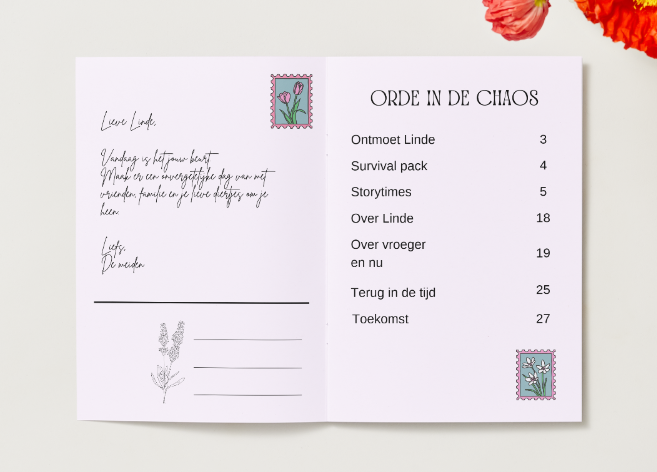 Lieve Linde,
Vandaag is het jouw beurt
Maak er een onvergetelijke dag van met
vrienden, familie en je lieve diertjes om je
heen
Liefs,
De meiden
ORDE IN DE CHAOS
Ontmoet Linde 3
Survival pack 4
Storytimes 5
Over Linde 18
Over vroeger
en nu 19
Terug in de tijd 25
Toekomst 27